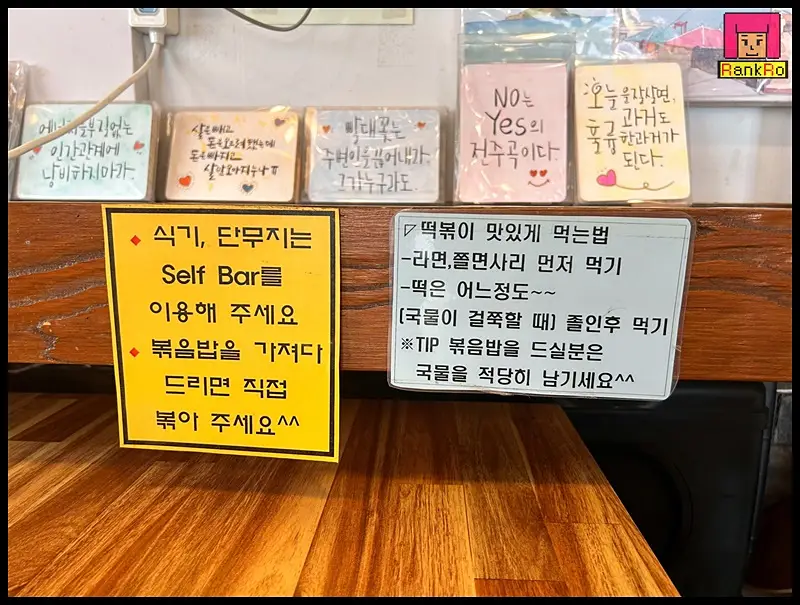 에너지를
인간관계에
낭비하지마가.
살은빼고
돈은
돈은빠지고
살만
빨대꽂는
주변인을
그가누구라도.
NO는
Yes의
전주곡이다.
오늘을잘살면,
과거도
훌륭한과거가
된다.
RankRo
식기, 단무지는
Self Bar를
이용해 주세요
볶음밥을 가져다
드리면 직접
볶아 주세요^^
떡볶이 맛있게 먹는법
-라면,쫄면사리 먼저 먹기
-떡은 어느정도~~
(국물이 걸쭉할 때) 졸인후 먹기
※TIP 볶음밥을 드실분은
국물을 적당히 남기세요^^